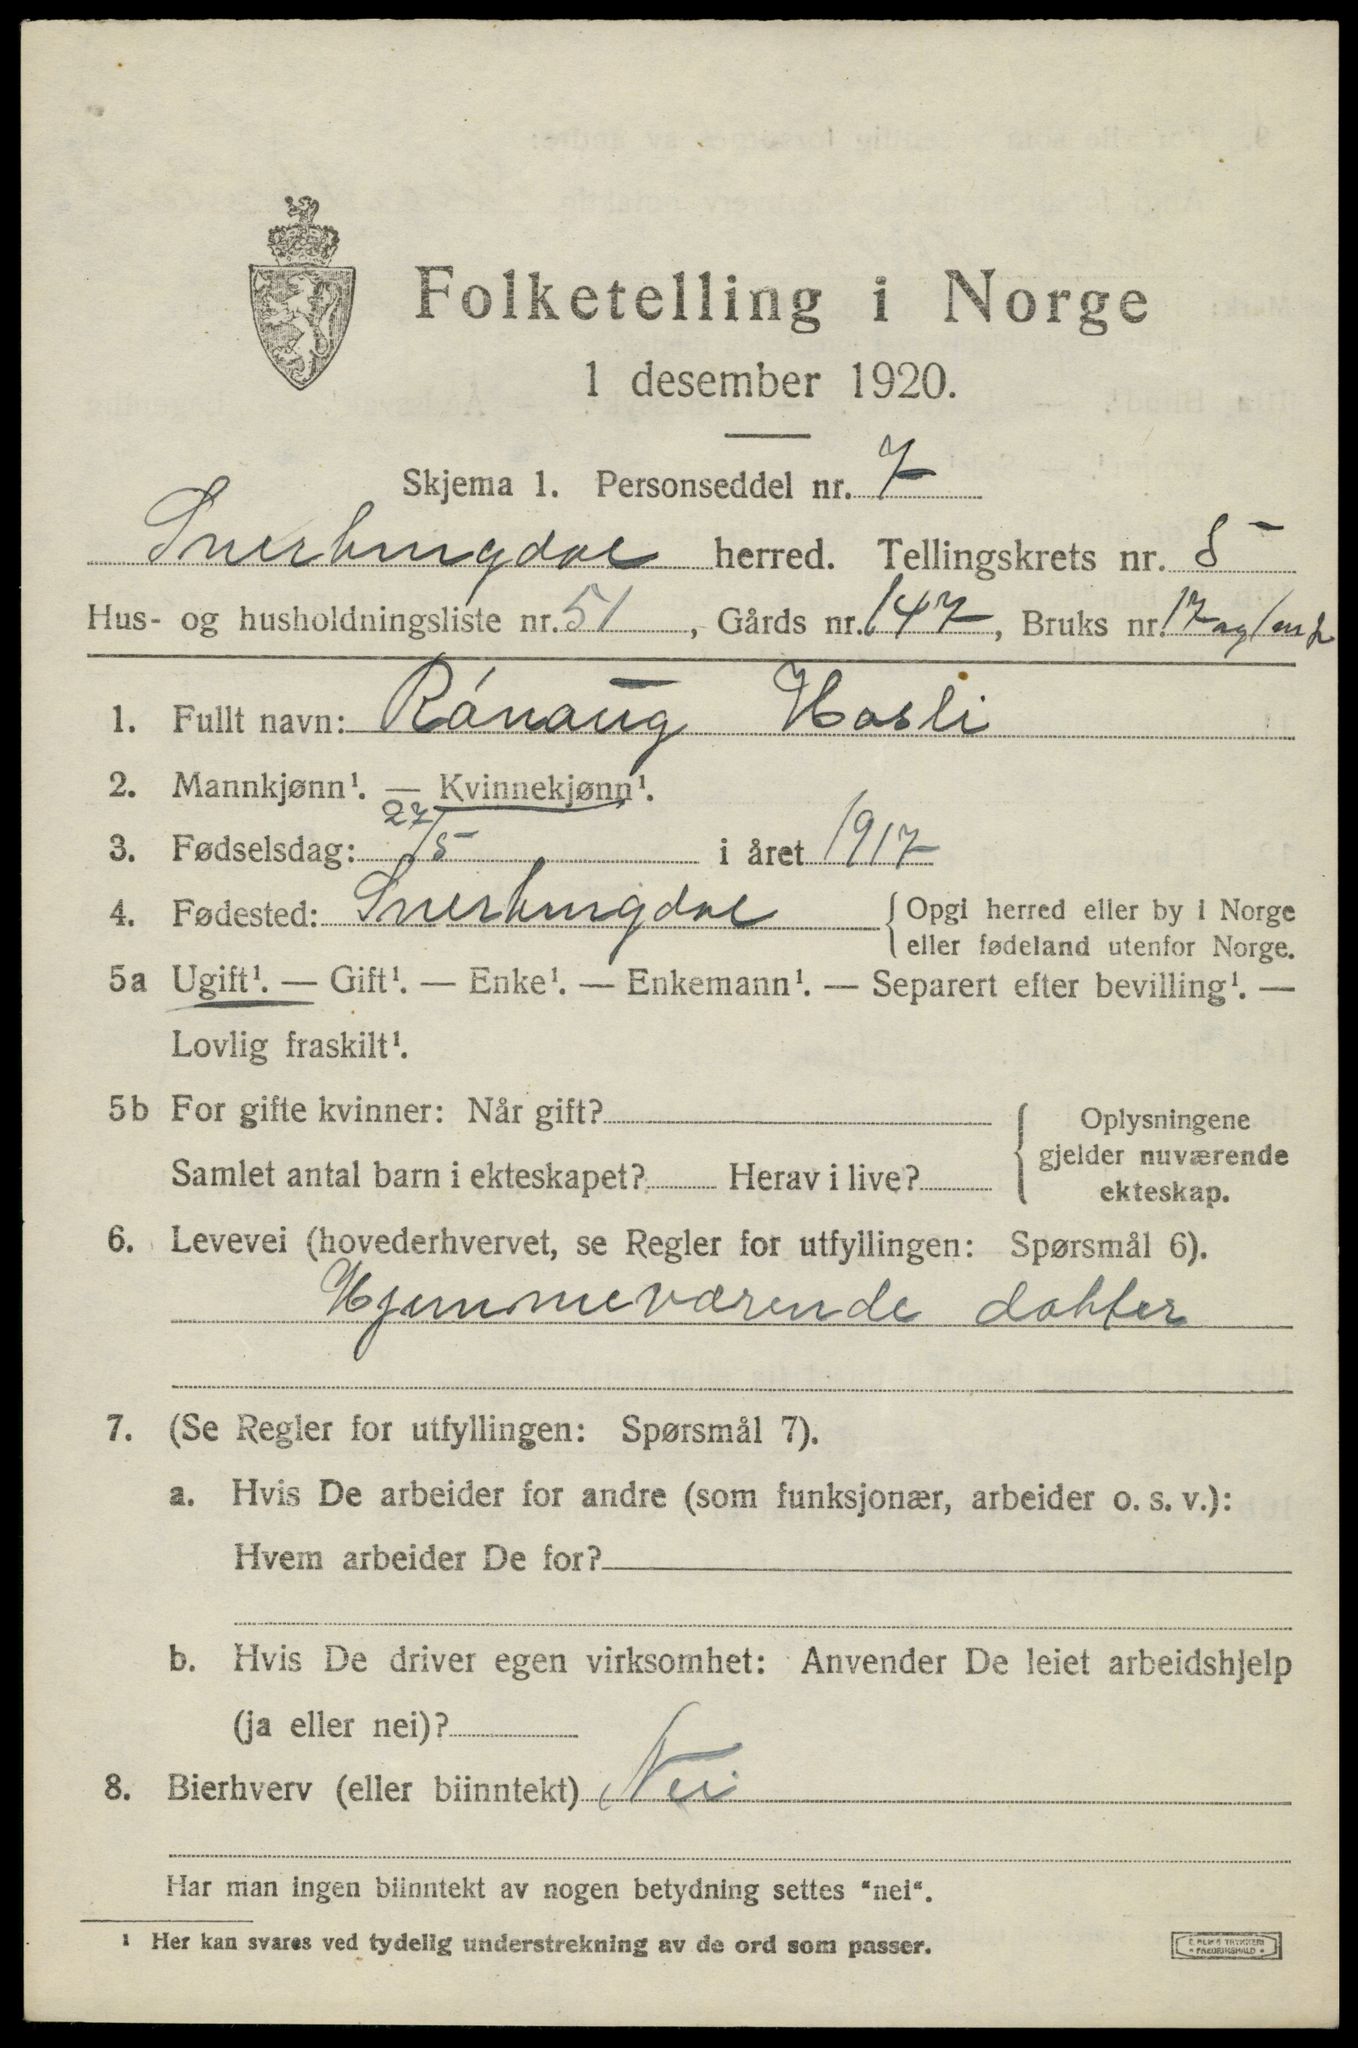 Folketelling i Norge
1 desember 1920.
Skjema 1. Personseddel nr. 7
Sverkmgdal herred. Tellingskrets nr. 5
Hus- og husholdningsliste nr. 51, Gårds nr. 147, Bruks nr. 17
1. Fullt navn: Rónaug Hosli
2. Mannkjønn¹. — Kvinnekjønn¹.
3. Fødselsdag: 27/5 i året 1917
4. Fødested: { Opgi herred eller by i Norge
eller fødeland utenfor Norge.
5a Ugift¹. — Gift¹. — Enke¹. — Enkemann¹. — Separert efter bevilling¹. —
Lovlig fraskilt¹.
5b For gifte kvinner: Når gift? { Oplysningene
gjelder nuværende
Samlet antal barn i ekteskapet? Herav i live? ekteskap.
6. Levevei (hovederhvervet, se Regler for utfyllingen: Spørsmål 6).
Hjemmeværende dotter
7. (Se Regler for utfyllingen: Spørsmål 7).
a. Hvis De arbeider for andre (som funksjonær, arbeider o. s. v.):
Hvem arbeider De for?
b. Hvis De driver egen virksomhet: Anvender De leiet arbeidshjelp
(ja eller nei)?
8. Bierhverv (eller biinntekt) Nei
Har man ingen biinntekt av nogen betydning settes "nei".
¹ Her kan svares ved tydelig understrekning av de ord som passer.